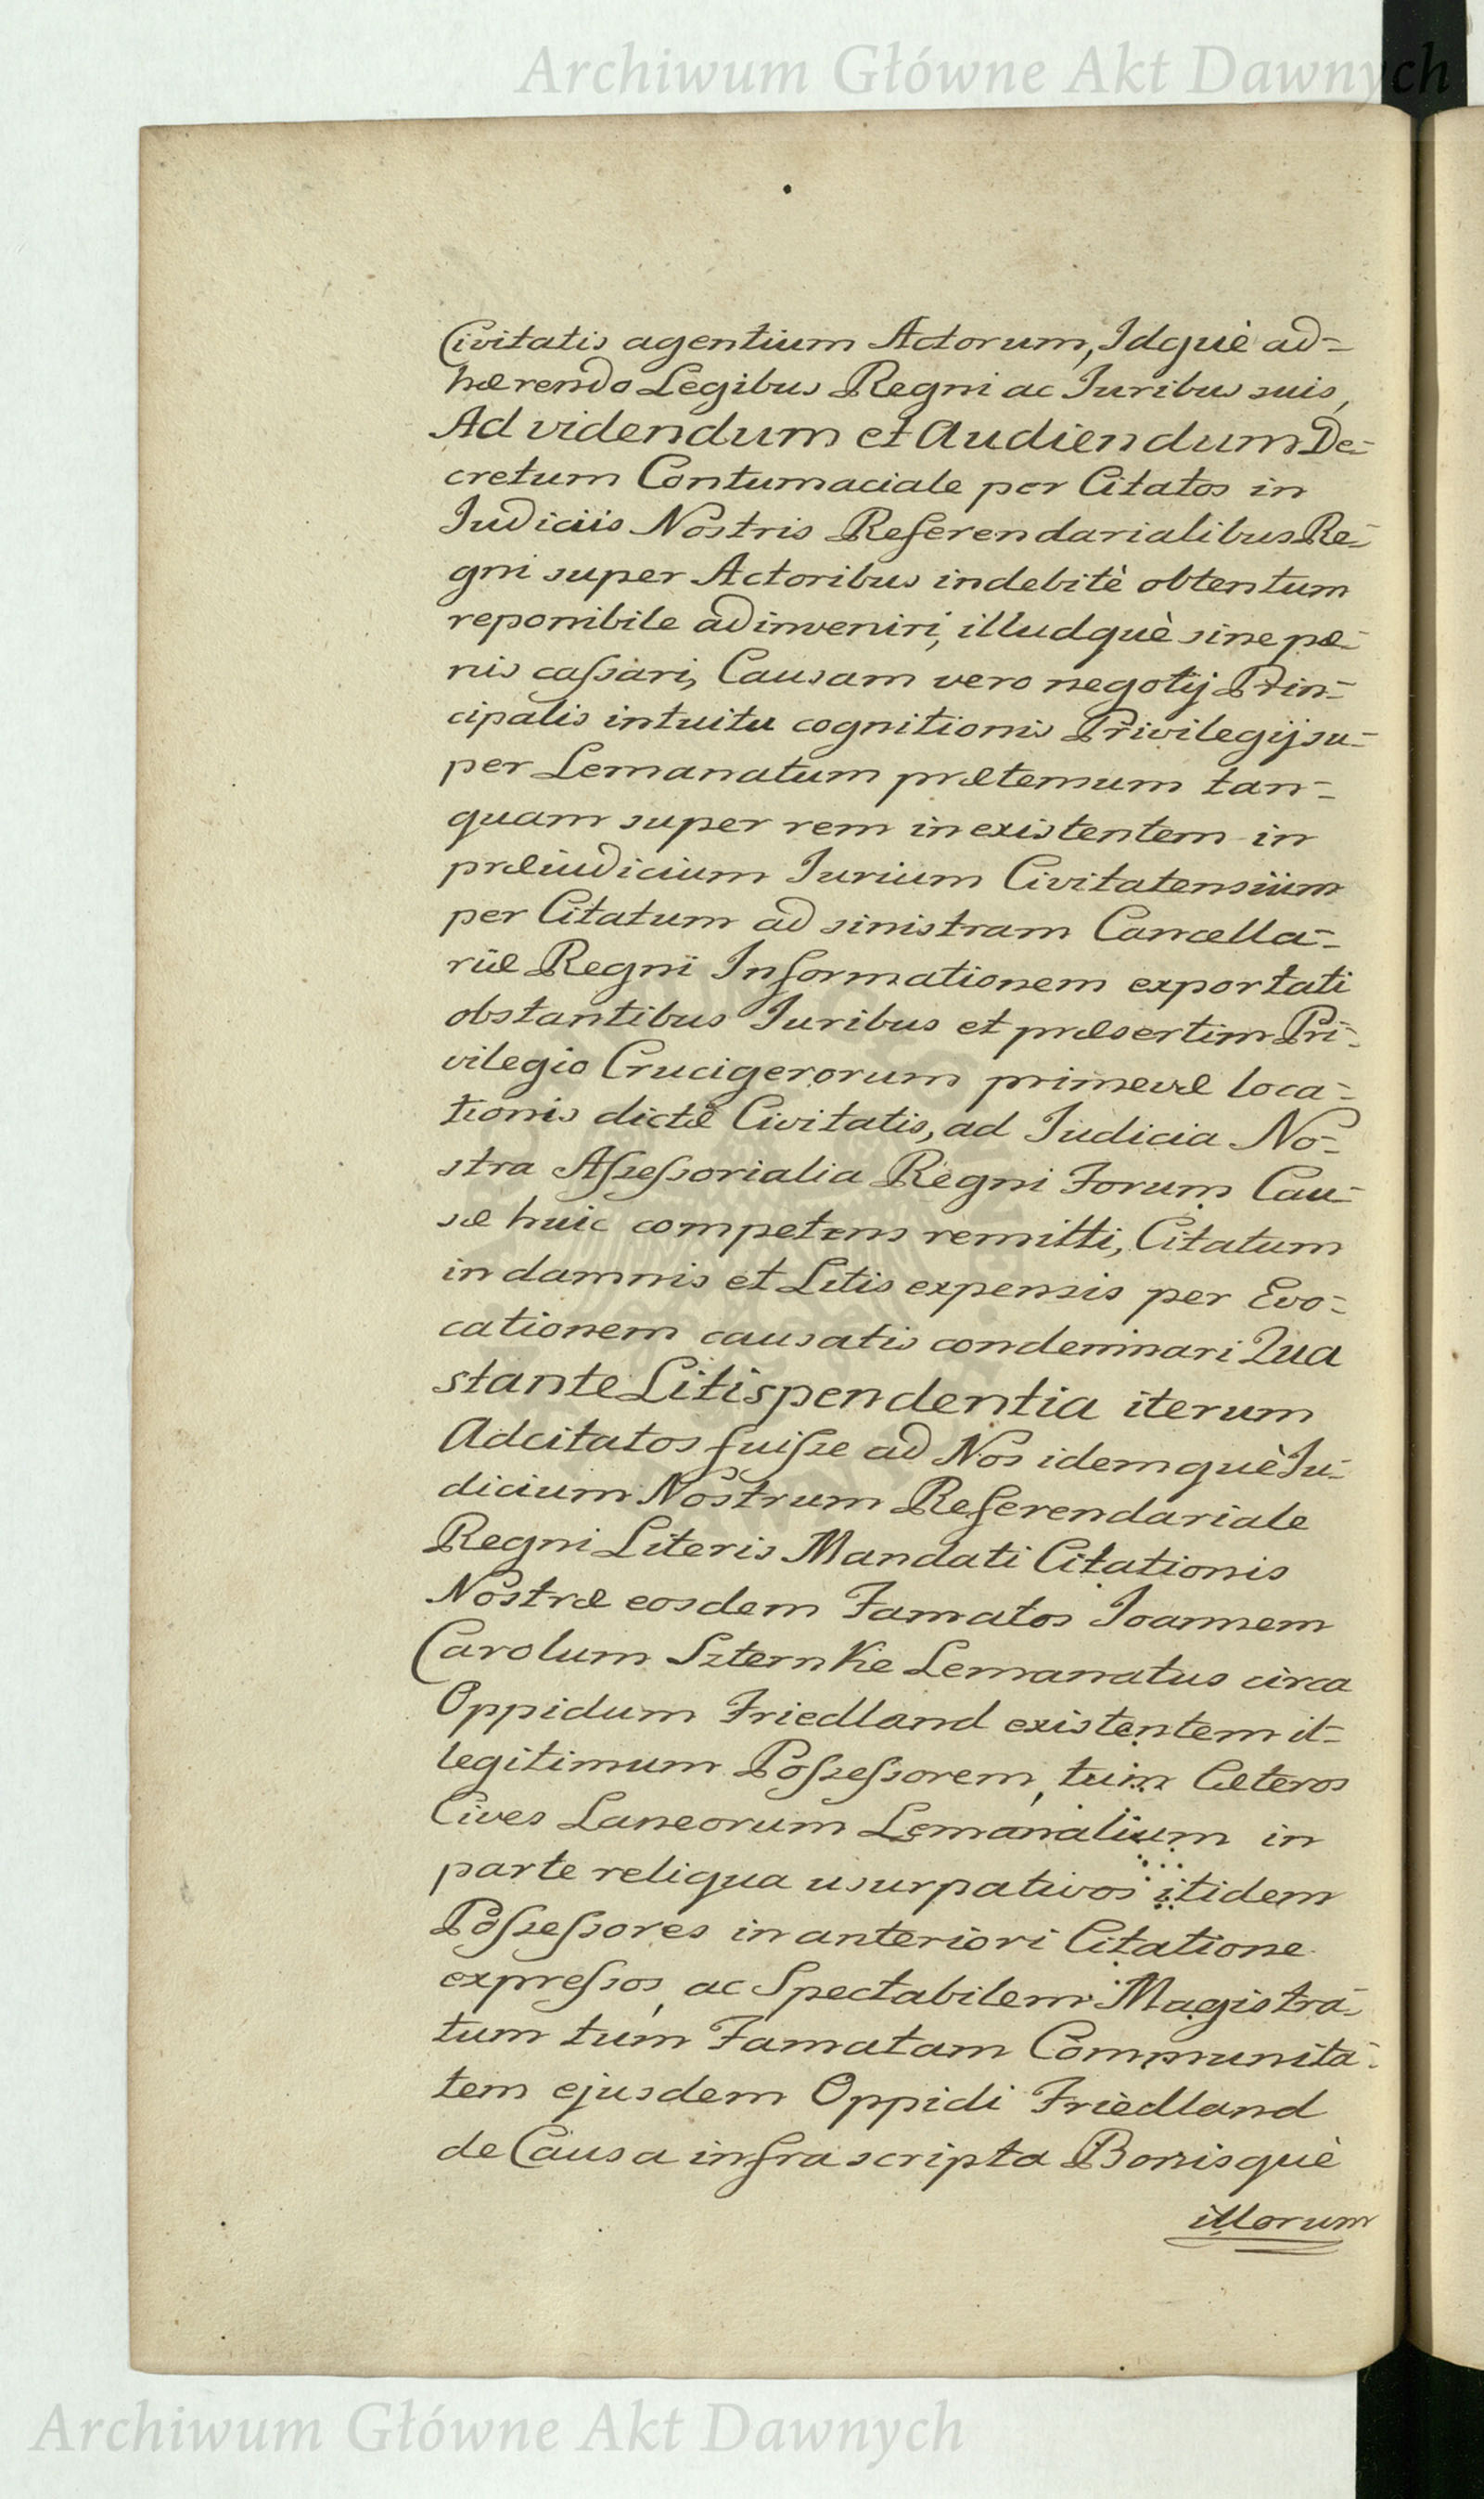 Archiwum Główne Akt Dawnych
Civitatis agentium Actorum, Idquè ad=
hærendo Legibus Regni ac Iuribus suis,
Ad videndum et Audiendum De=
cretum Contumaciale per Citatos in
Iudiciis Nostris Referendarialibus Re=
gni super Actoribus indebitè obtentum
reponibile adinveniri, illudquè sine pæ=
nis caſsari, Causam vero negotij Prin=
cipalis intuitu cognitionis Privilegij su=
per Lemanatum prætemsum tan=
quam super rem inexistentem in
præiudicium Iurium Civitatensium
per Citatum ad sinistram Cancella=
riæ Regni Informationem exportati
obstantibus Iuribus et præsertim Pri=
vilegio Crucigerorum primevæ loca=
tionis dictæ Civitatis, ad Iudicia No=
stra Aſseſsorialia Regni Forum Cau=
sæ huic competens remitti, Citatum
in damnis et Litis expensis per Evo=
cationem causatis condemnari Qua
stante Litispendentia iterum
Adcitatos fuiſse ad Nos idemquè Iu=
dicium Nostrum Referendariale
Regni Literis Mandati Citationis
Nostræ eosdem Famatos Ioannem
Carolum Szternke Lemanatus circa
Oppidum Friedland existentem il=
legitimum Poſseſsorem, tum Cæteros
Cives Laneorum Lemanalium in
parte reliqua usurpativos itidem
Poſseſsores in anteriori Citatione
expreſsos, ac Spectabilem Magistra=
tum tum Famatam Communita=
tem ejusdem Oppidi Friedland
de Causa infrascripta Bonisquè
illorum
Archiwum Główne Akt Dawnych